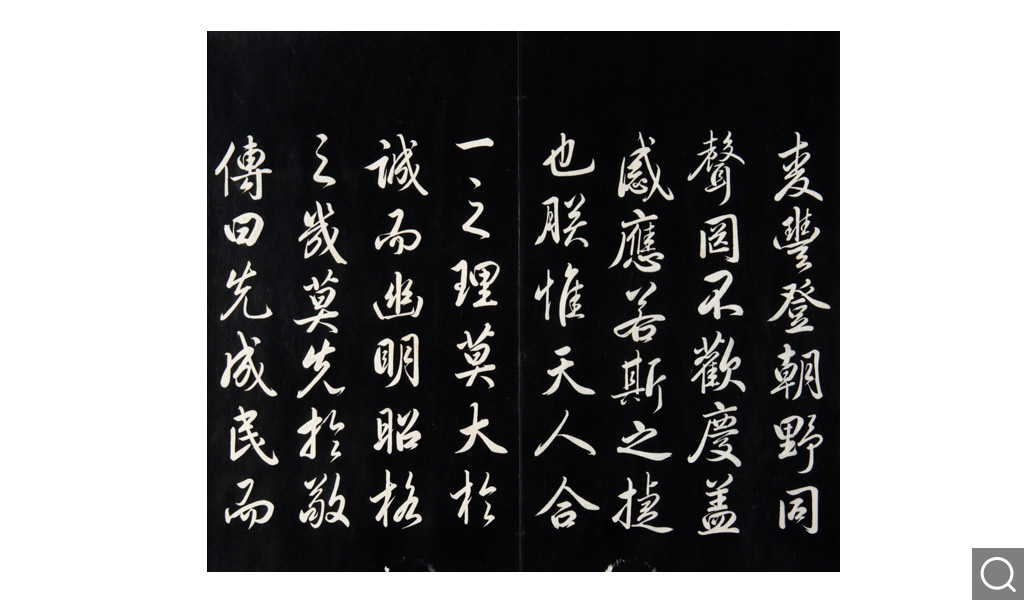 麦豐登朝野同
聲罔不歡慶蓋
感應若斯之捷
也朕惟天人合
一之理莫大於
誠而幽明昭格
之幾莫先於敬
傳曰先成民而